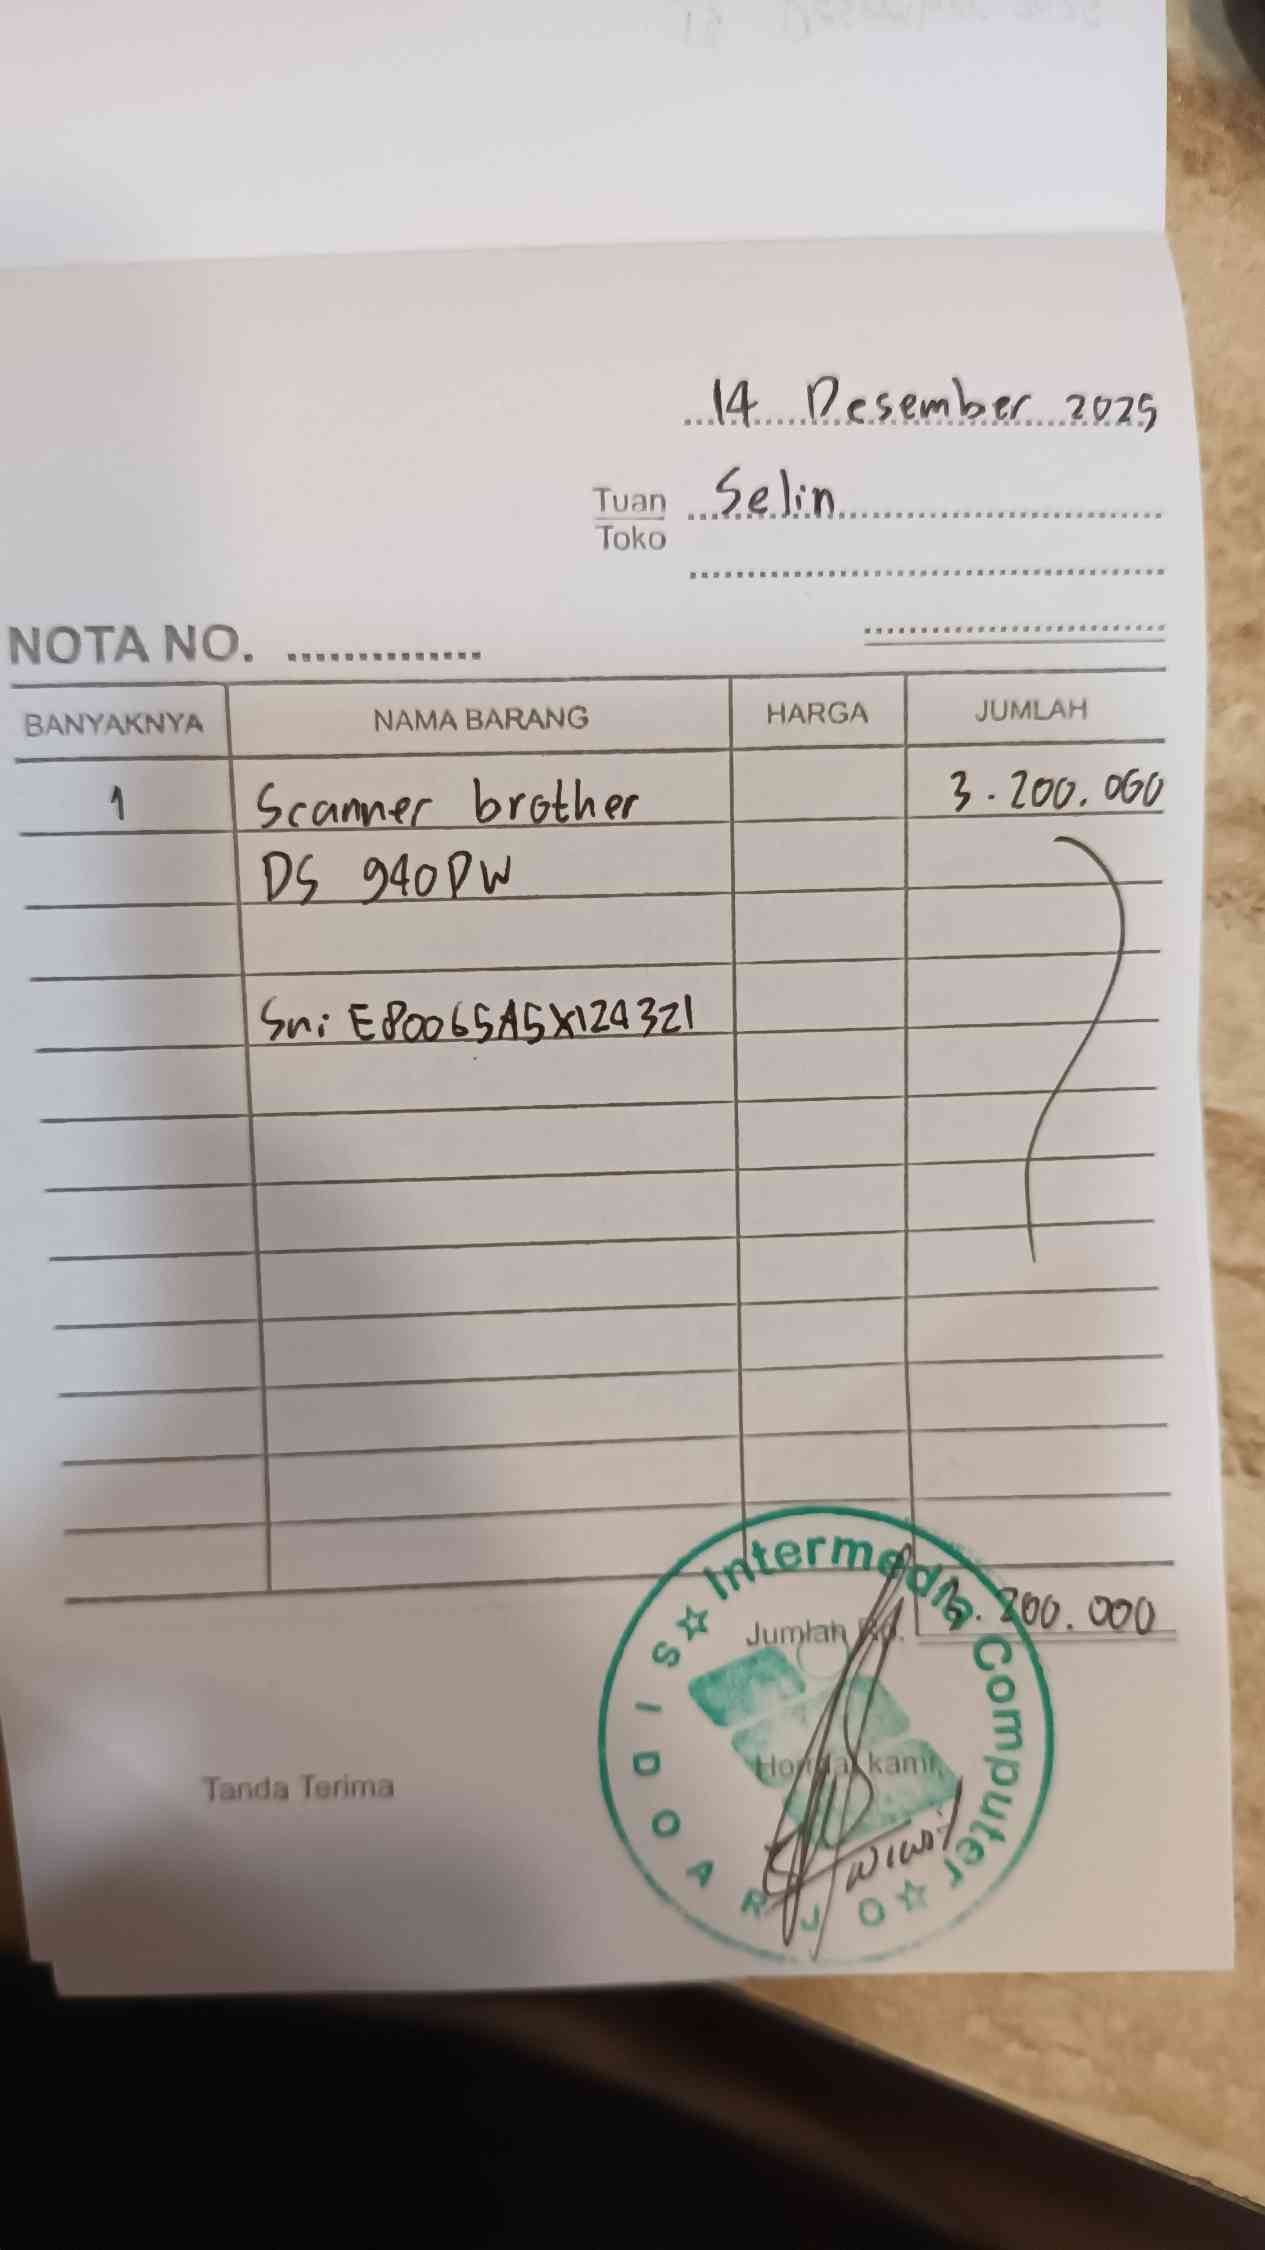 14 Desember 2025
Tuan Selin
Toko
NOTA NO.
BANYAKNYA NAMA BARANG HARGA JUMLAH
1 Scanner brother 3.200.000
DS 940DW
Sn: E80065A5X124321
Jumlah Rp. 3.200.000
Tanda Terima
Hormat kami,
☆ Intermedia Computer ☆
SIDOARJO